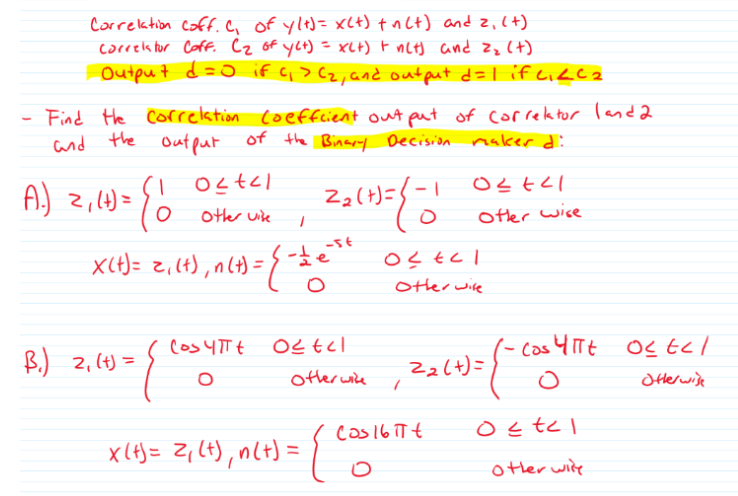 Correlation Coff. C₁ of y(t)= x(t) + n(t) and z₁(t)
correlator Coff. C₂ of y(t) = x(t) + n(t) and z₂(t)
Output d=0 if c₁ > c₂, and output d=1 if c₁ < c₂
- Find the Correlation Coeffcient output of correlator 1 and 2
and the output of the Binary Decision maker d:
A.) z₁(t) = { 1 0≤t<1 z₂(t)= { -1 0≤t<1
0 otherwise , 0 otherwise
x(t)= z₁(t), n(t) = { -½ e^-5t 0≤t<1
0 otherwise
B.) z₁(t) = { cos4πt 0≤t<1 z₂(t)= { -cos4πt 0≤t<1
0 otherwise , 0 otherwise
x(t)= z₁(t), n(t) = { cos16πt 0≤t<1
0 otherwise